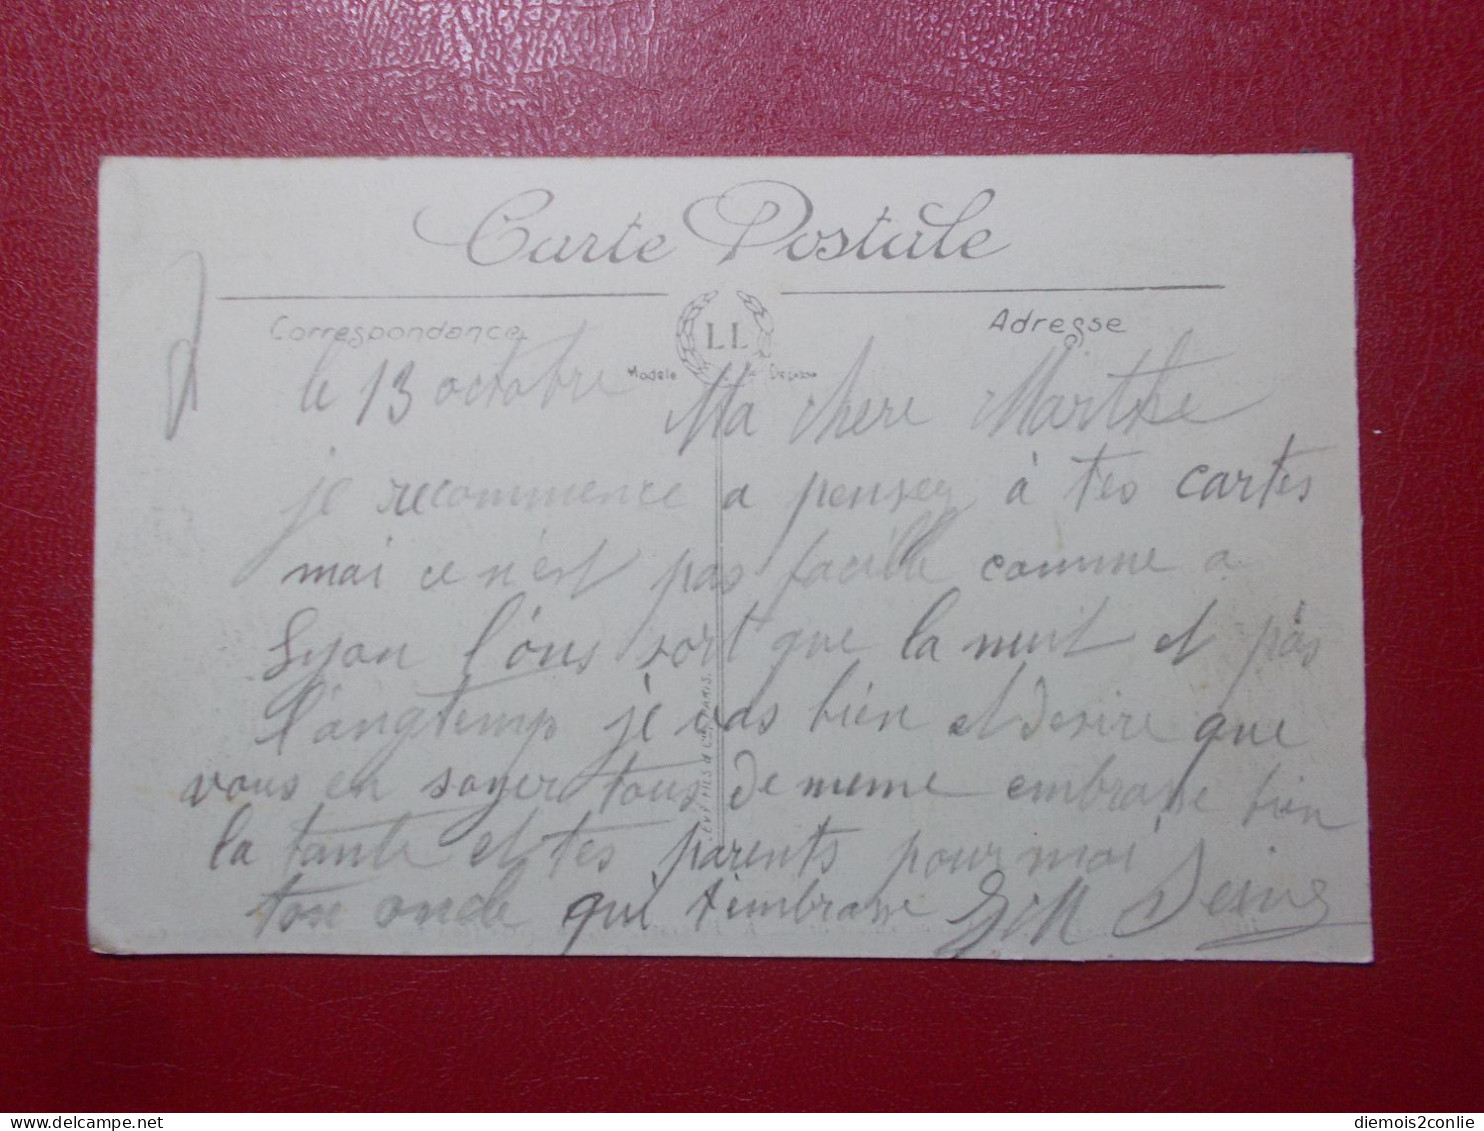 Carte Postale
Correspondance
LL
Adresse
Modèle Déposé
le 13 octobre
Ma chere Marthe
je recommence a pensez à tes cartes
mai ce n'est pas facille comme a
Lyon l'ons sort que la nuit et pas
l'angtemp je vas bien et desire que
vous en soyer tous de meme embrasse bien
la tante et tes parents pour moi
ton oncle qui t'embrasse
LEVY FILS & Cie PARIS.
diemois2conlie
delcampe.net